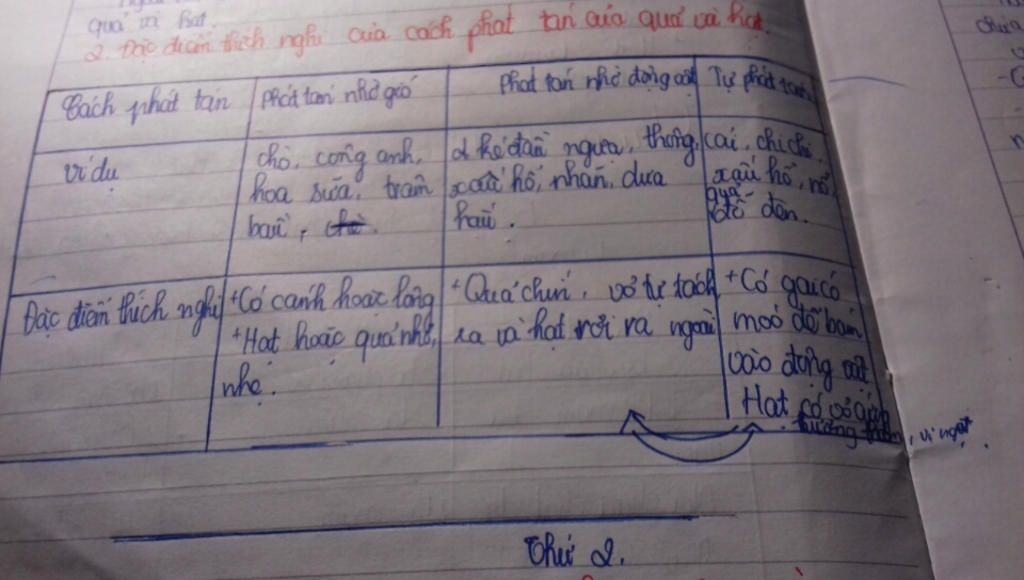 quả và hạt.
2. Đặc điểm thích nghi của cách phát tán của quả và hạt.
Cách phát tán
Phát tán nhờ gió
Phát tán nhờ động vật
Tự phát tán
Ví dụ
chò, công anh,
hoa sữa, trâm
bầu,
ké đầu ngựa, thông,
xấu hổ, nhãn, dưa
hấu.
cải, chi chi,
xấu hổ, nổ
quả
đỗ đen.
Đặc điểm thích nghi
+ Có cánh hoặc lông
+ Hạt hoặc quả nhỏ,
nhẹ.
+ Quả chín, vỏ tự tách
ra và hạt rơi ra ngoài
+ Có gai có
moó để bám
vào động vật
Hạt có vỏ
, vị ngọt.
Thứ 2.